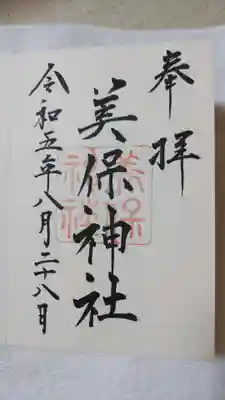 奉拝
美保神社
令和五年八月二十八日
美保
神社